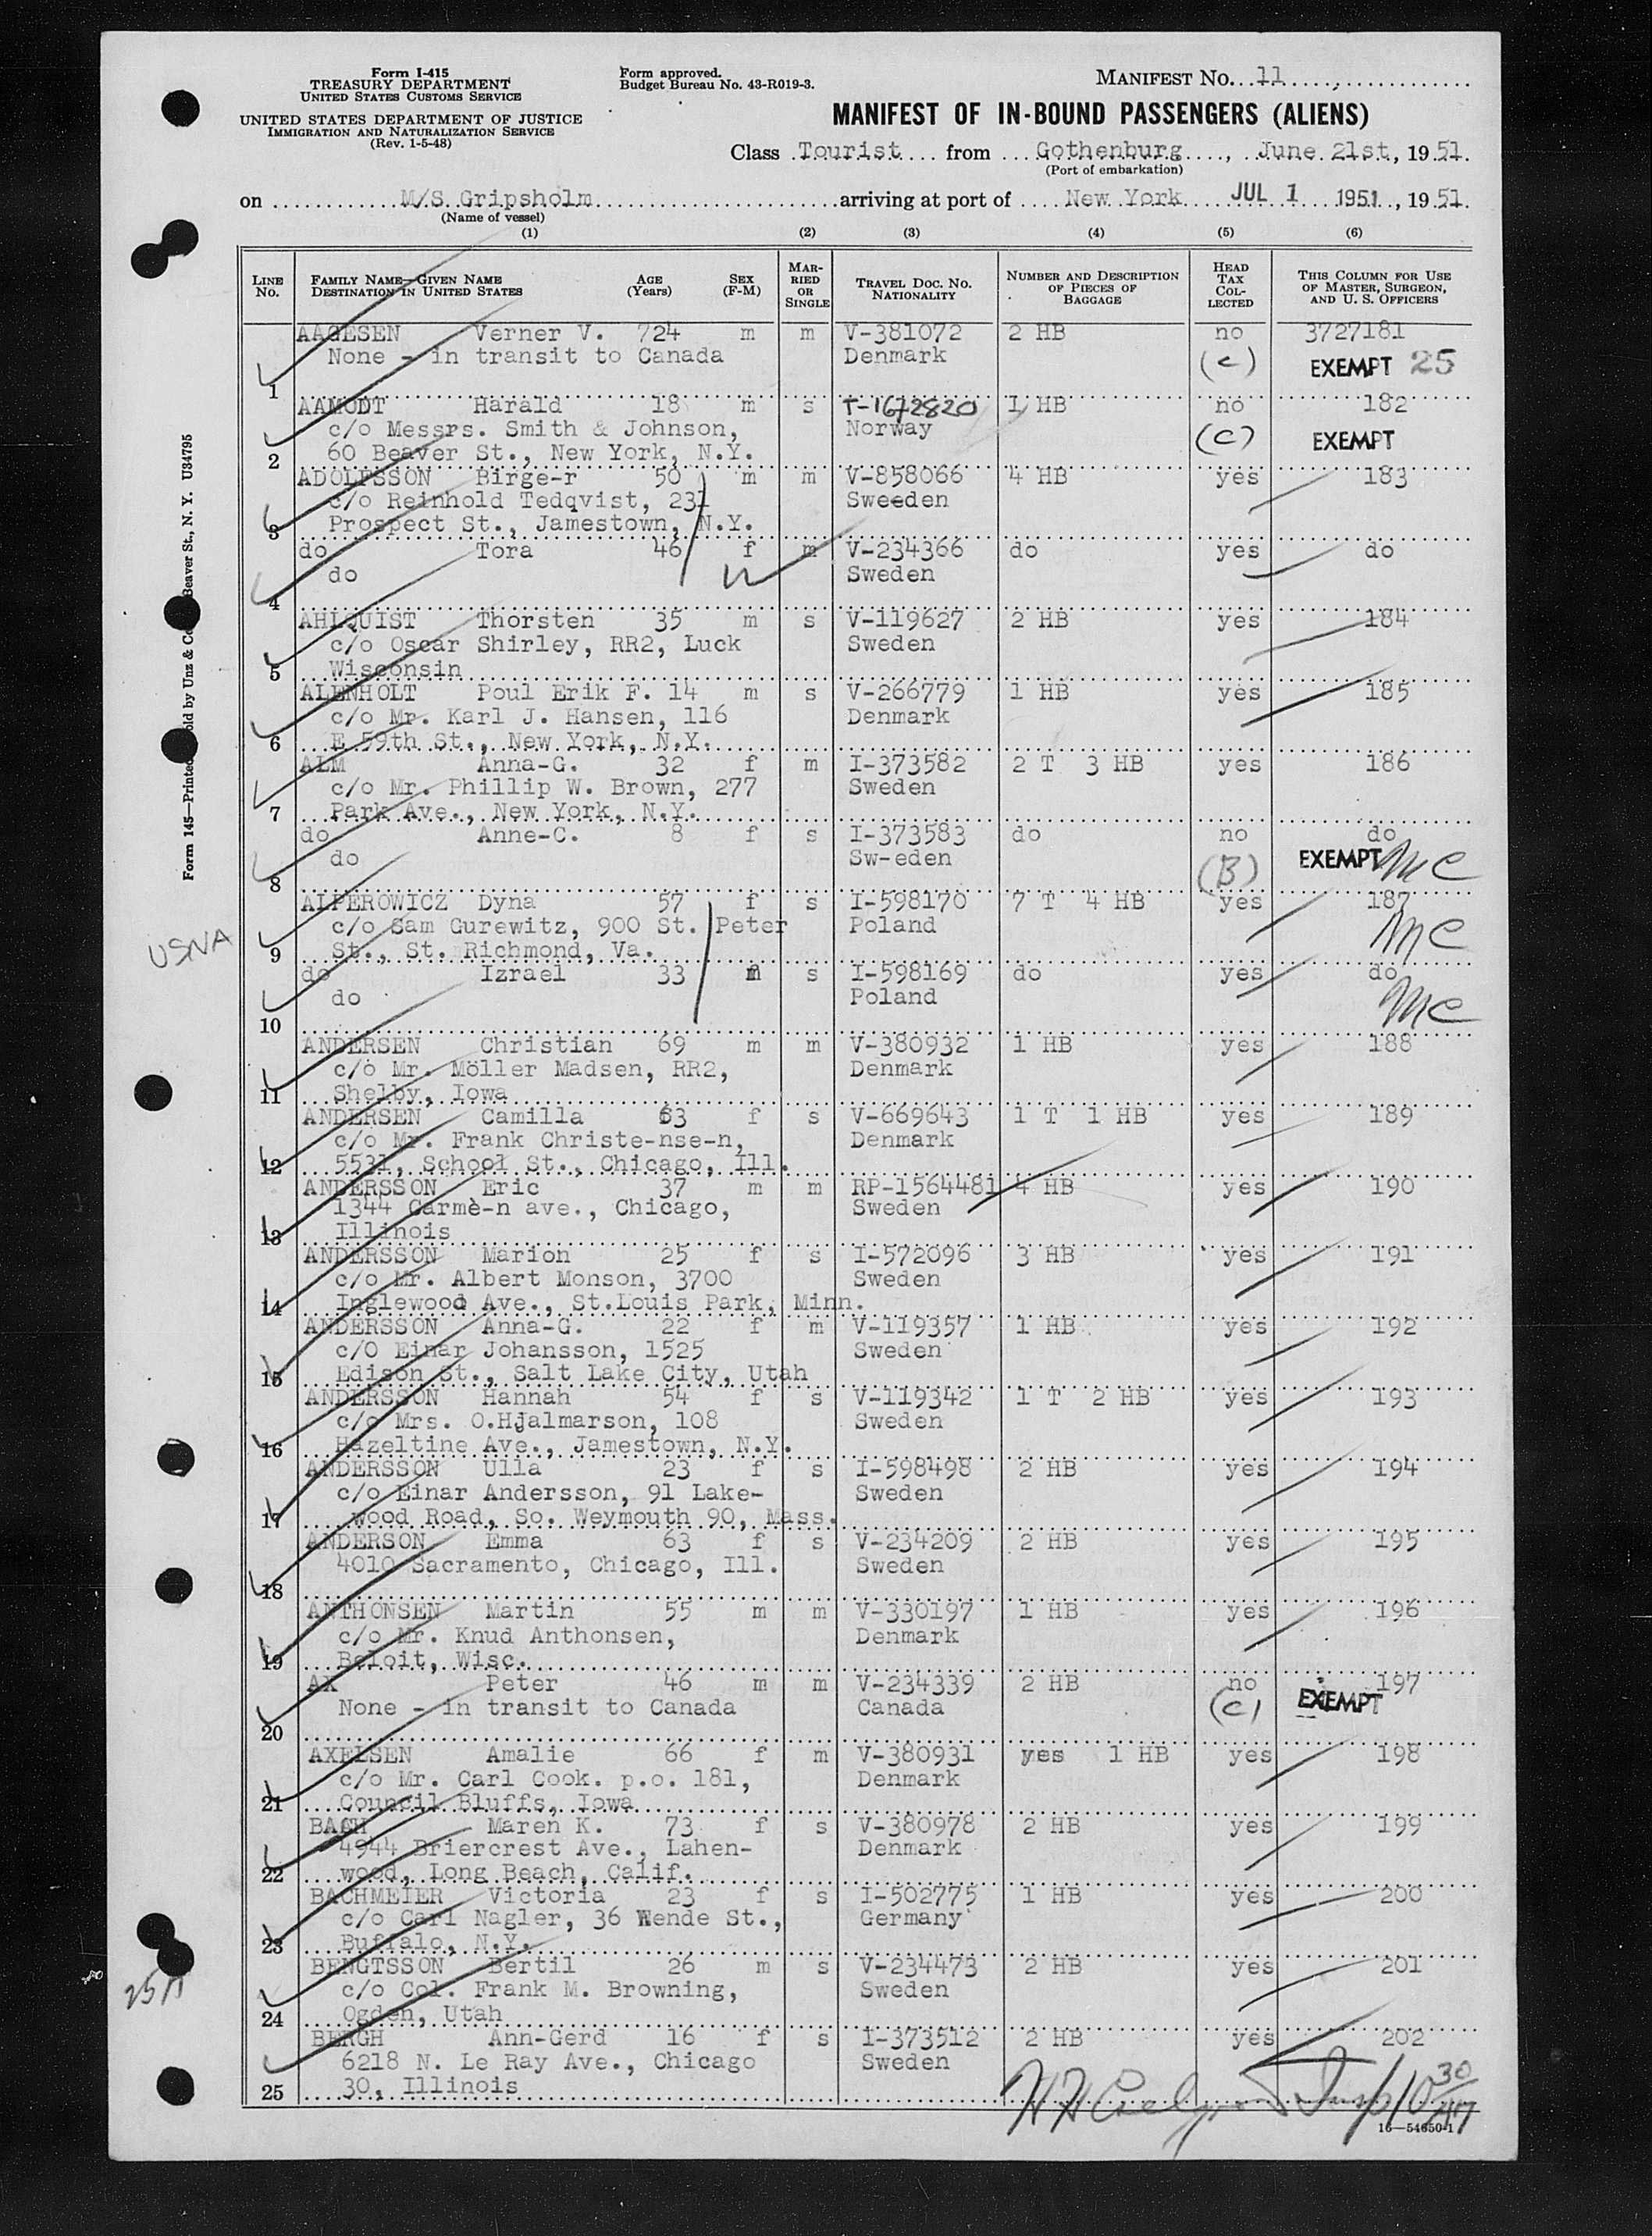 Form I-415
TREASURY DEPARTMENT
UNITED STATES CUSTOMS SERVICE
UNITED STATES DEPARTMENT OF JUSTICE
IMMIGRATION AND NATURALIZATION SERVICE
(Rev. 1-5-48)
Form approved.
Budget Bureau No. 43-R019-3.
MANIFEST No. 11
MANIFEST OF IN-BOUND PASSENGERS (ALIENS)
Class Tourist from Gothenburg, June 21st, 1951.
(Port of embarkation)
on M/S Gripsholm arriving at port of New York JUL 1 1951, 1951.
(Name of vessel)
(1) (2) (3) (4) (5) (6)
LINE No. FAMILY NAME—GIVEN NAME DESTINATION IN UNITED STATES AGE (Years) SEX (F-M) MARRIED OR SINGLE TRAVEL DOC. NO. NATIONALITY NUMBER AND DESCRIPTION OF PIECES OF BAGGAGE HEAD TAX COLLECTED THIS COLUMN FOR USE OF MASTER, SURGEON, AND U. S. OFFICERS
AAGESEN Verner V. 724 m m V-381072 2 HB no 3727181
None - in transit to Canada Denmark (C) EXEMPT 25
1
AAMODT Harald 18 m s T-1672820 1 HB no 182
c/o Messrs. Smith & Johnson, Norway (C) EXEMPT
2 60 Beaver St., New York, N.Y.
ADOLFSSON Birge-r 50 m m V-858066 4 HB yes 183
c/o Reinhold Tedqvist, 231 Sweeden
3 Prospect St., Jamestown, N.Y.
do Tora 46 f m V-234366 do yes do
do Sweden
4
AHLQUIST Thorsten 35 m s V-119627 2 HB yes 184
c/o Oscar Shirley, RR2, Luck Sweden
5 Wisconsin
ALENHOLT Poul Erik F. 14 m s V-266779 1 HB yes 185
c/o Mr. Karl J. Hansen, 116 Denmark
6 E 59th St., New York, N.Y.
ALM Anna-G. 32 f m I-373582 2 T 3 HB yes 186
c/o Mr. Phillip W. Brown, 277 Sweden
7 Park Ave., New York, N.Y.
do Anne-C. 8 f s I-373583 do no do
do Sw-eden (B) EXEMPT MC
8
ALPEROWICZ Dyna 57 f s I-598170 7 T 4 HB yes 187
c/o Sam Gurewitz, 900 St. Peter Poland MC
USNA
9 St., St. Richmond, Va.
do Izrael 33 m s I-598169 do yes do
do Poland MC
10
ANDERSEN Christian 69 m m V-380932 1 HB yes 188
c/o Mr. Möller Madsen, RR2, Denmark
11 Shelby, Iowa
ANDERSEN Camilla 63 f s V-669643 1 T 1 HB yes 189
c/o Mr. Frank Christe-nse-n, Denmark
12 5531, School St., Chicago, Ill.
ANDERSSON Eric 37 m m RP-1564481 4 HB yes 190
1344 Carmè-n ave., Chicago, Sweden
13 Illinois
ANDERSSON Marion 25 f s I-572096 3 HB yes 191
c/o Mr. Albert Monson, 3700 Sweden
14 Inglewood Ave., St.Louis Park, Minn.
ANDERSSON Anna-G. 22 f m V-119357 1 HB yes 192
c/O Einar Johansson, 1525 Sweden
15 Edison St., Salt Lake City, Utah
ANDERSSON Hannah 54 f s V-119342 1 T 2 HB yes 193
c/o Mrs. O.Hjalmarson, 108 Sweden
16 Hazeltine Ave., Jamestown, N.Y.
ANDERSSON Ulla 23 f s I-598498 2 HB yes 194
c/o Einar Andersson, 91 Lake- Sweden
17 wood Road, So. Weymouth 90, Mass.
ANDERSON Emma 63 f s V-234209 2 HB yes 195
4010 Sacramento, Chicago, Ill. Sweden
18
ANTHONSEN Martin 55 m m V-330197 1 HB yes 196
c/o Mr. Knud Anthonsen, Denmark
19 Beloit, Wisc.
AX Peter 46 m m V-234339 2 HB no 197
None - in transit to Canada Canada (C) EXEMPT
20
AXELSEN Amalie 66 f m V-380931 yes 1 HB yes 198
c/o Mr. Carl Cook. p.o. 181, Denmark
21 Council Bluffs, Iowa
BACH Maren K. 73 f s V-380978 2 HB yes 199
4944 Briercrest Ave., Lahen- Denmark
22 wood, Long Beach, Calif.
BACHMEIER Victoria 23 f s I-502775 1 HB yes 200
c/o Carl Nagler, 36 Wende St., Germany
23 Buffalo, N.Y.
BENGTSSON Bertil 26 m s V-234473 2 HB yes 201
c/o Col. Frank M. Browning, Sweden
24 Ogden, Utah
BERGH Ann-Gerd 16 f s I-373512 2 HB yes 202
6218 N. Le Ray Ave., Chicago Sweden
25 30, Illinois
Insp 10 30
16—54650-1
Form 145—Printed Sold by Unz & Co. Beaver St., N. Y. U34795